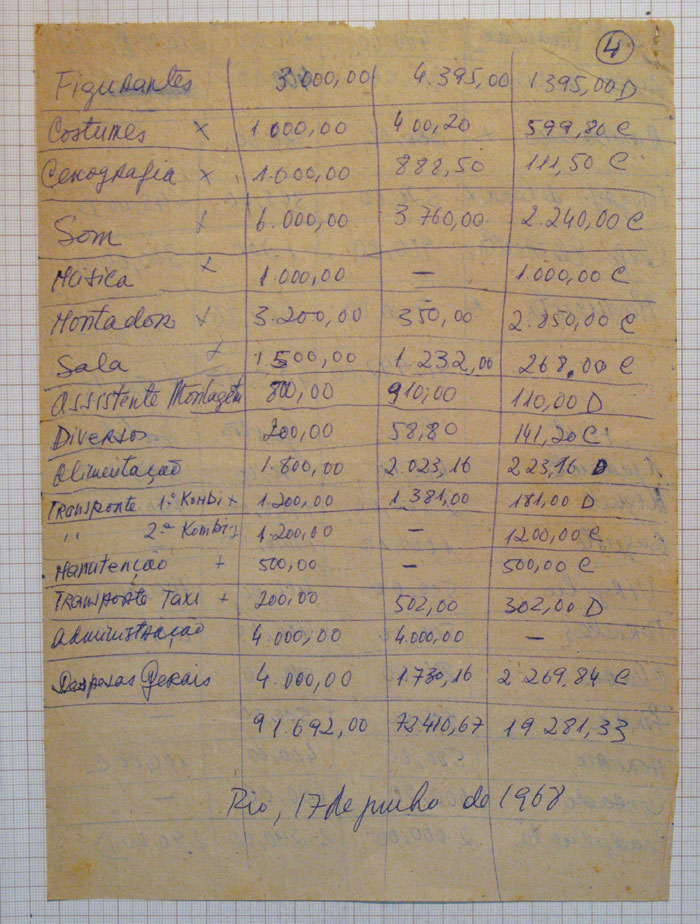 4
Figurantes 3.000,00 4.395,00 1395,00 D
Costumes x 1.000,00 400,20 599,80 C
Cenografia x 1.000,00 888,50 111,50 C
Som x 6.000,00 3.760,00 2.240,00 C
Música x 1.000,00 — 1.000,00 C
Montador x 3.200,00 350,00 2.850,00 C
Sala x 1500,00 1.232,00 268,00 C
Assistente Montagem 800,00 910,00 110,00 D
Diversos 200,00 58,80 141,20 C
Alimentação 2.023,16 223,16 D
Transporte 1ª Kombi x 1.200,00 1.381,00 181,00 D
,, 2ª Kombi x 1.200,00 — 1200,00 C
Manutenção + 500,00 — 500,00 C
Transporte Taxi + 200,00 502,00 302,00 D
Administração 4.000,00 4.000,00 —
Despesas Gerais 4.000,00 1.730,16 2 269,84 C
91.692,00 19 281,33
Rio, 17 de de 1968